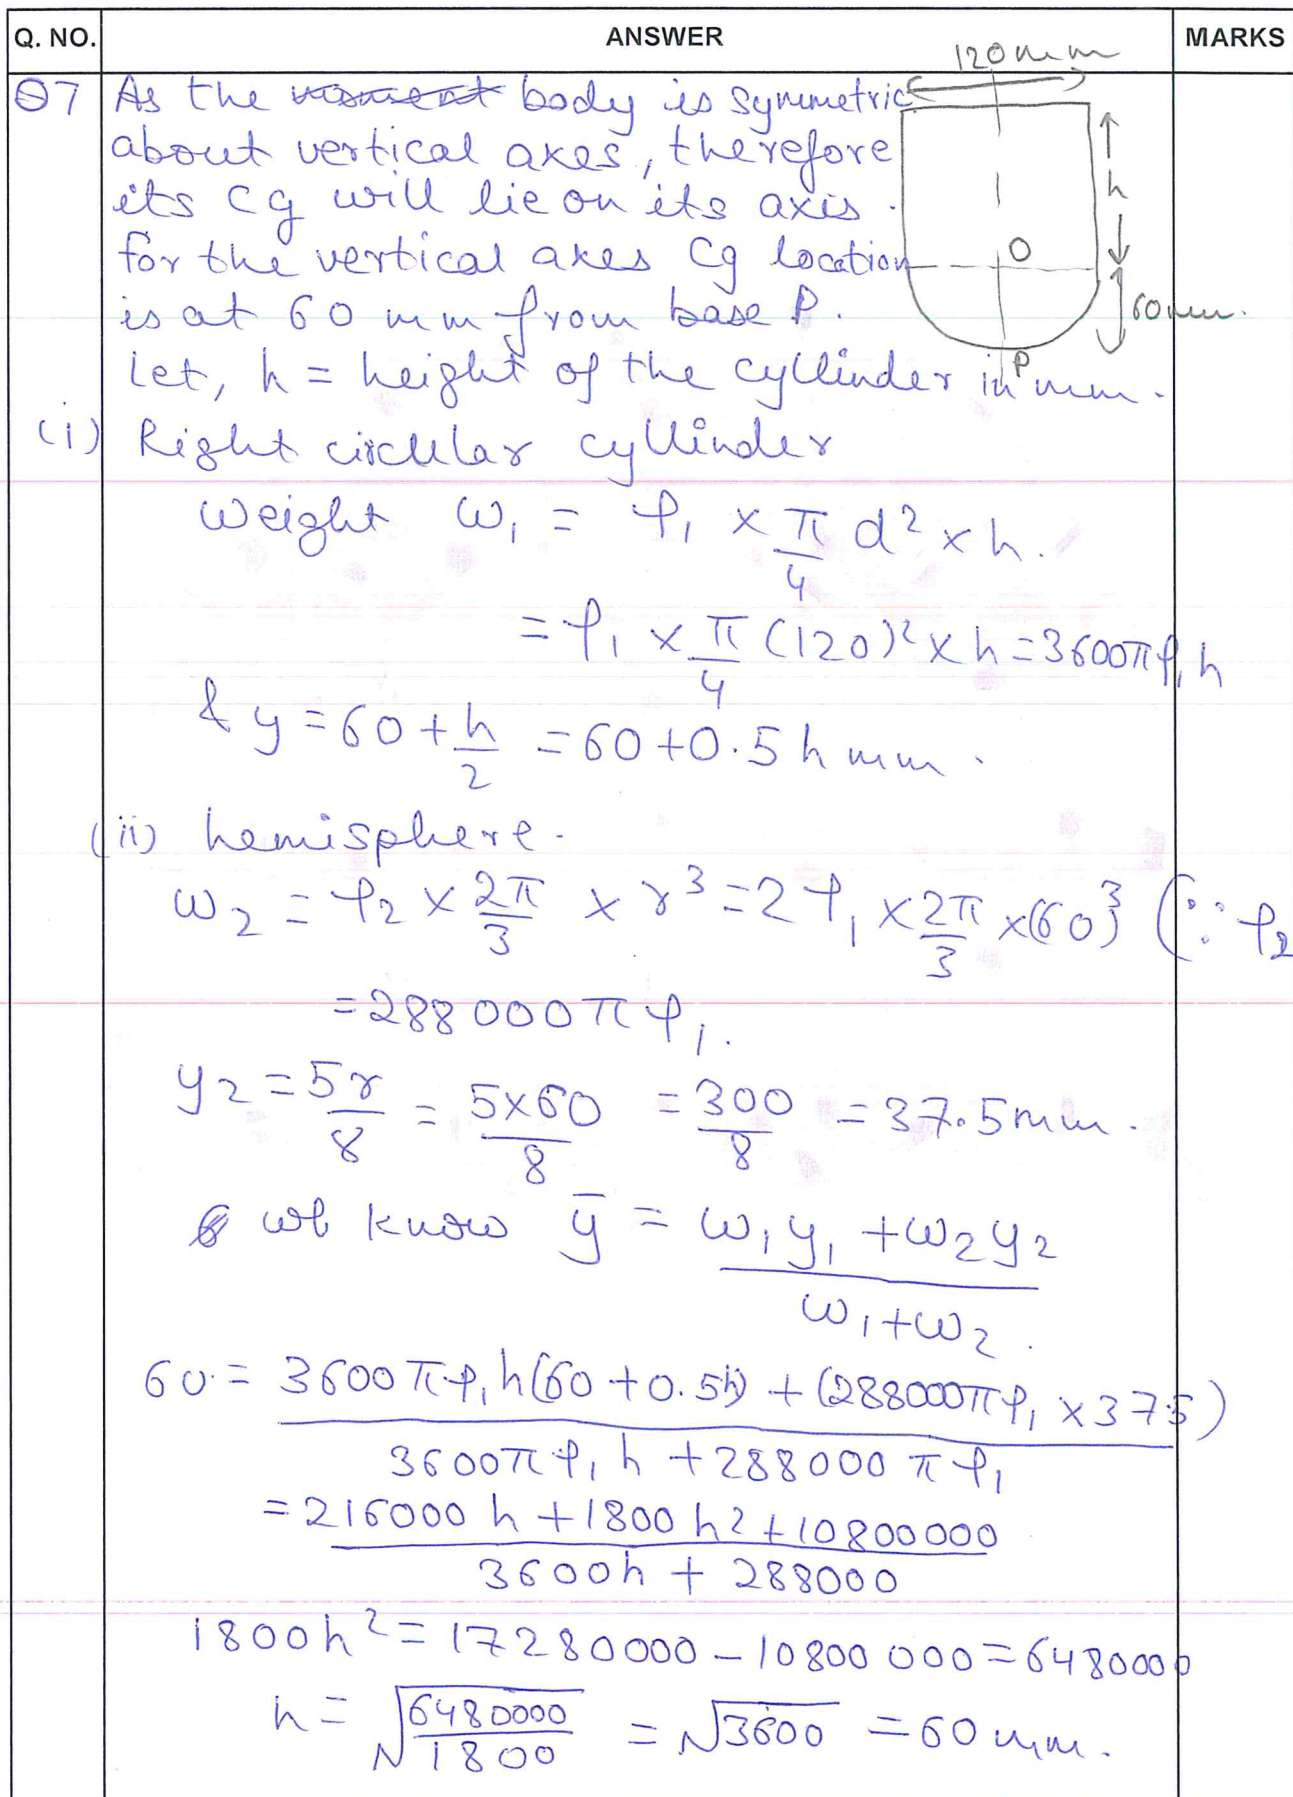 Q. NO. ANSWER MARKS
120mm
Q7 As the moment body is symmetric
about vertical axes, therefore
its Cg will lie on its axis.
for the vertical axes Cg location
is at 60 mm from base P.
h
O
60mm.
P
Let, h = height of the cyllinder in mm.
(i) Right circular cyllinder
Weight ω₁ = ρ₁ × π/4 d² × h.
= ρ₁ × π/4 (120)² × h = 3600πρ₁h
& y = 60 + h/2 = 60 + 0.5 h mm.
(ii) hemisphere.
ω₂ = ρ₂ × 2π/3 × r³ = 2ρ₁ × 2π/3 × (60)³ (∵ ρ₂
= 288000πρ₁.
y₂ = 5r/8 = 5×60/8 = 300/8 = 37.5mm.
we know ȳ = ω₁y₁ + ω₂y₂ / ω₁ + ω₂.
60 = 3600πρ₁h(60 + 0.5h) + (288000πρ₁ × 37.5) / 3600πρ₁h + 288000πρ₁
= 216000 h + 1800 h² + 10800000 / 3600h + 288000
1800h² = 17280000 – 10800000 = 6480000
h = √6480000/1800 = √3600 = 60 mm.